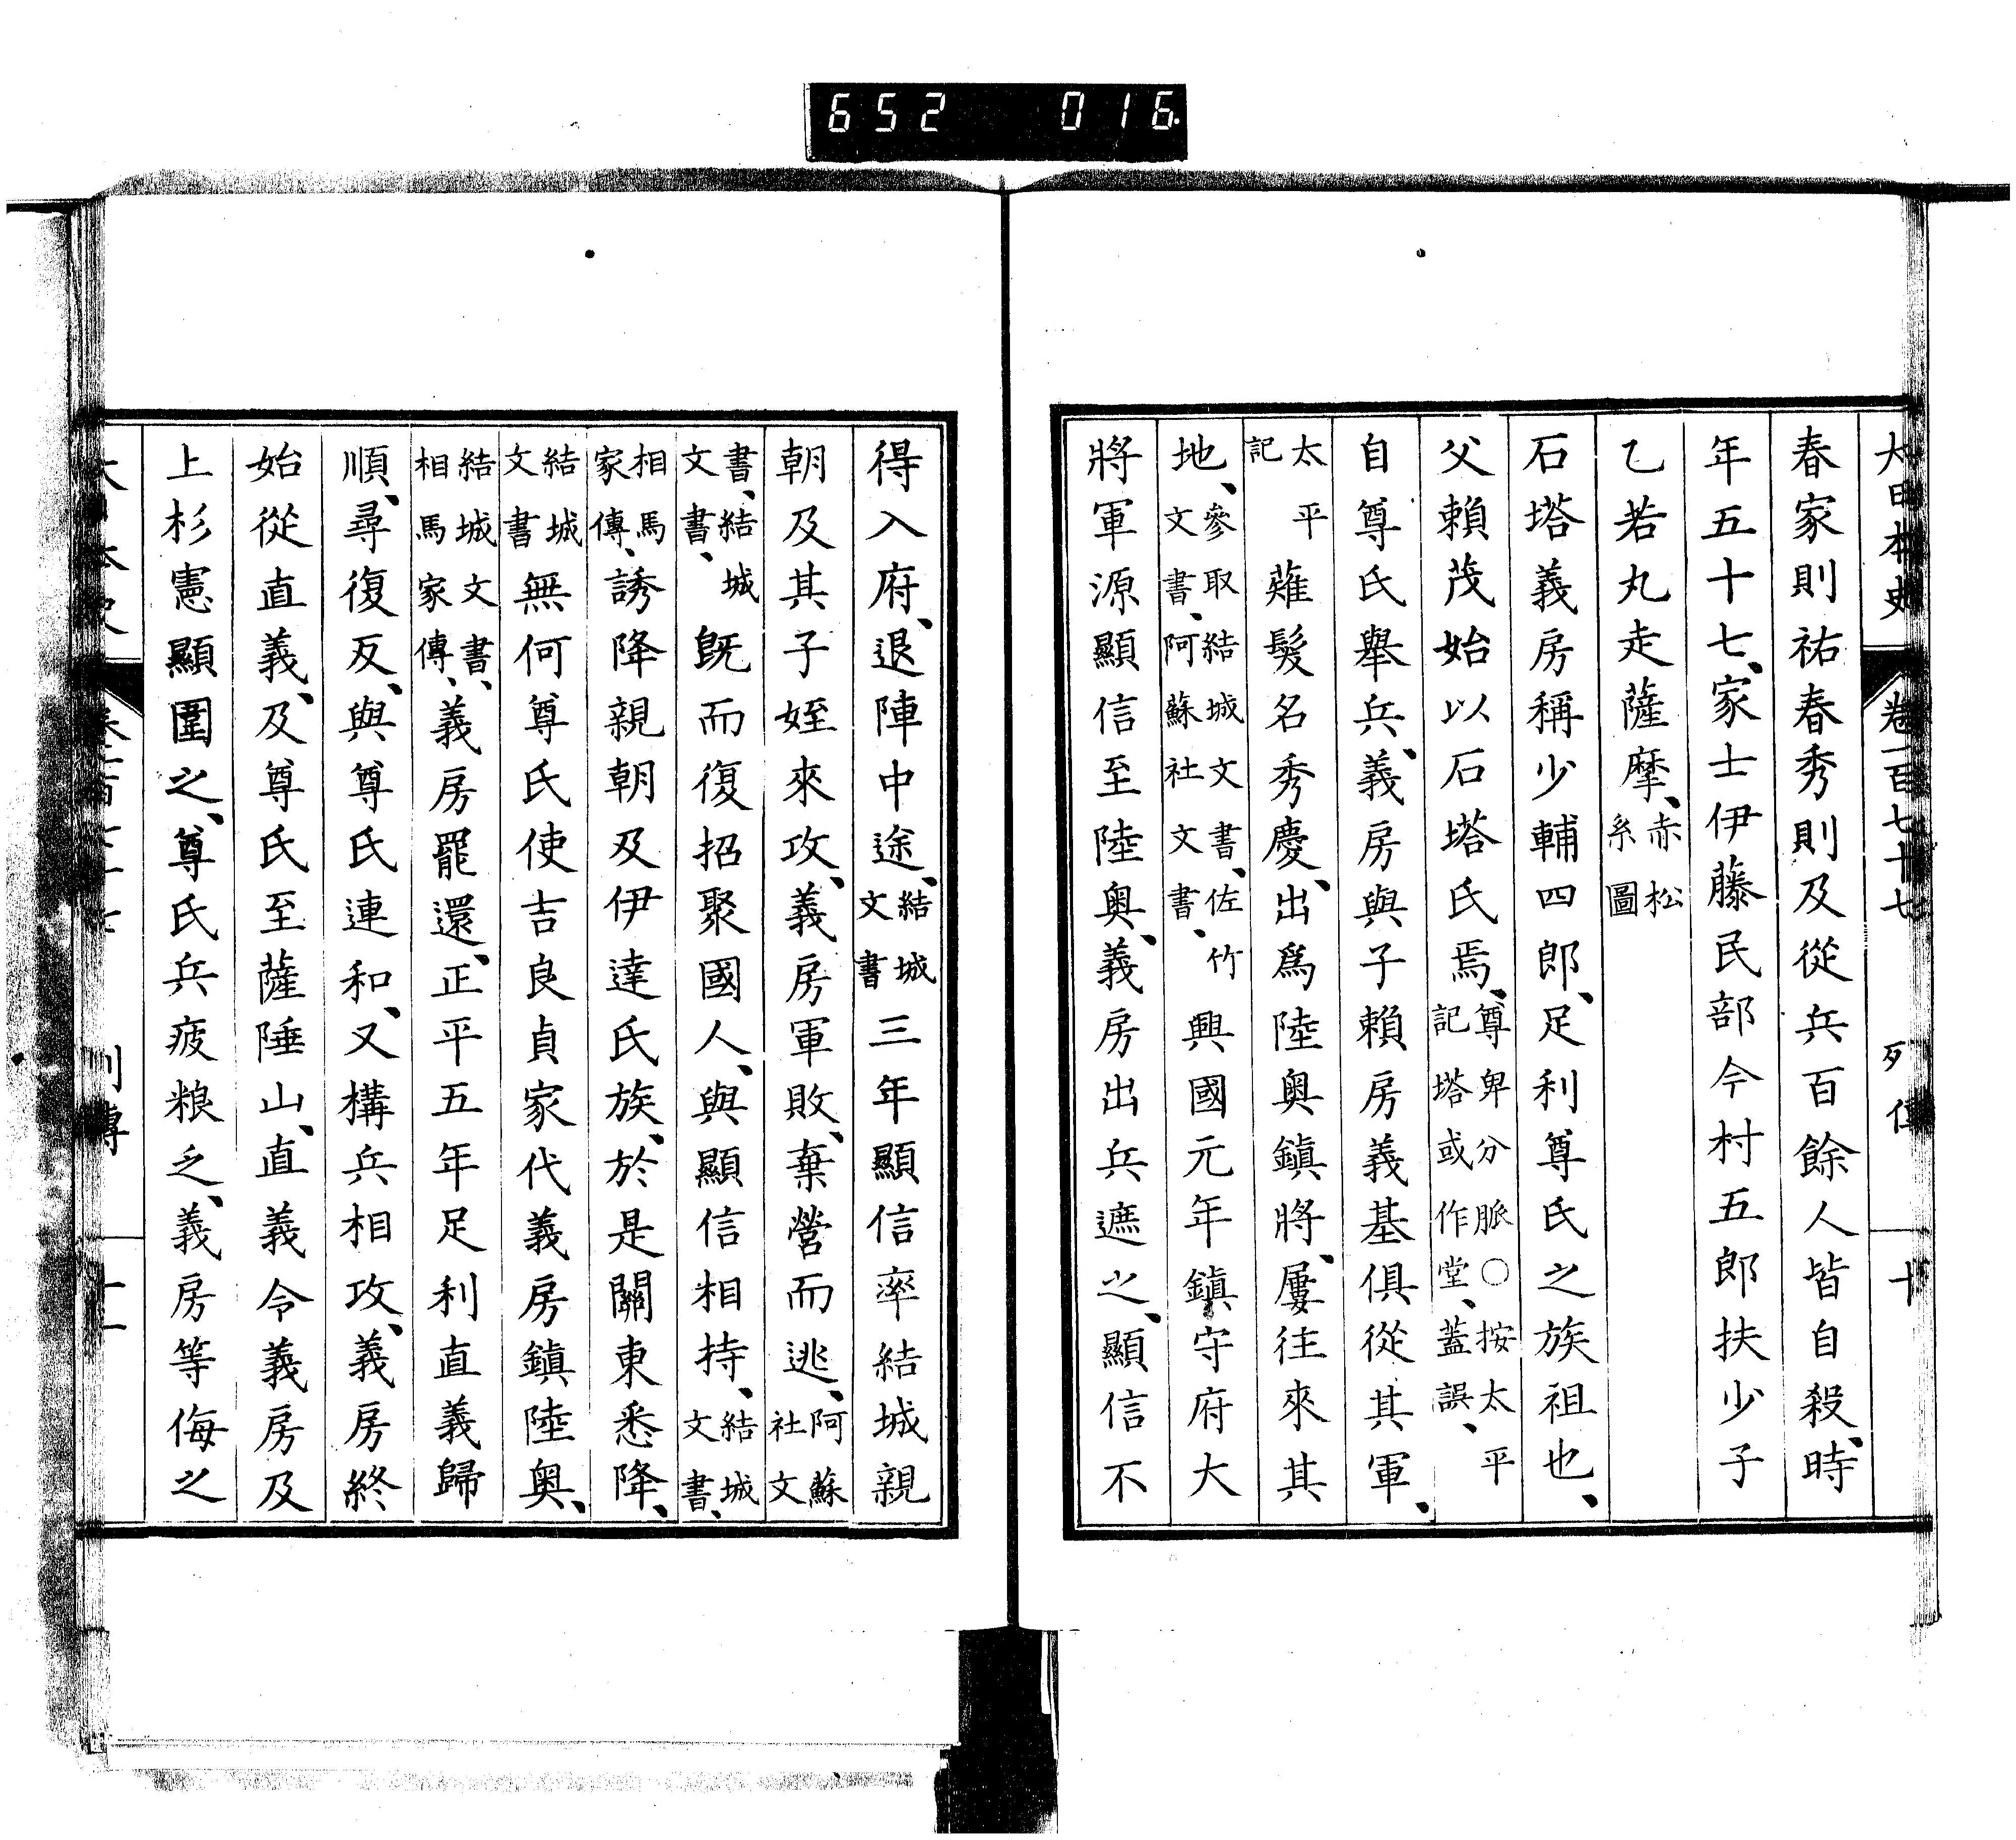 652 016
大日本史 卷一百七十七 列傳 十
春家則祐春秀則及從兵百餘人皆自殺、時
年五十七、家士伊藤民部今村五郎扶少子
乙若丸走薩摩、赤松系圖
石塔義房稱少輔四郎、足利尊氏之族祖也、
父賴茂始以石塔氏焉、尊卑分脈○按太平記塔或作堂、蓋誤、
自尊氏舉兵、義房與子賴房義基俱從其軍、
太平記薙髮名秀慶、出爲陸奧鎮將、屢往來其
地、參取結城文書、佐竹文書、阿蘇社文書、興國元年鎮守府大
將軍源顯信至陸奧、義房出兵遮之、顯信不
得入府、退陣中途、結城文書三年顯信率結城親
朝及其子姪來攻、義房軍敗、棄營而逃、阿蘇社文
書、結城文書、既而復招聚國人、與顯信相持、結城文書、
相馬家傳、誘降親朝及伊達氏族、於是關東悉降、
結城文書無何尊氏使吉良貞家代義房鎮陸奧、
結城文書、相馬家傳、義房罷還、正平五年足利直義歸
順、尋復反、與尊氏連和、又構兵相攻、義房終
始從直義、及尊氏至薩陲山、直義令義房及
上杉憲顯圍之、尊氏兵疲粮乏、義房等侮之